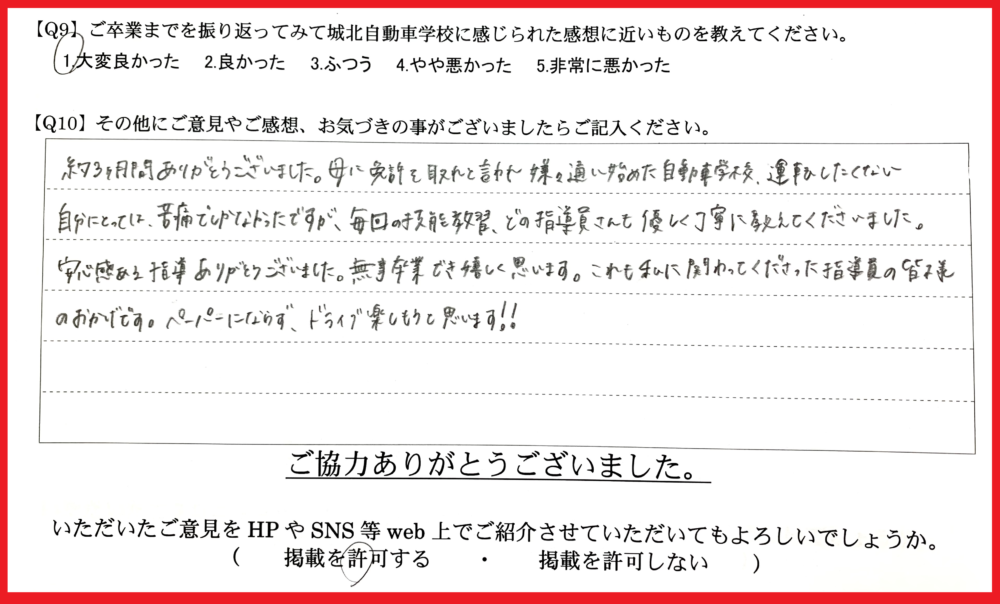 【Q9】ご卒業までを振り返ってみて城北自動車学校に感じられた感想に近いものを教えてください。
1.大変良かった 2.良かった 3.ふつう 4.やや悪かった 5.非常に悪かった
【Q10】その他にご意見やご感想、お気づきの事がございましたらご記入ください。
約3ヶ月間ありがとうございました。母に免許を取れと言われ嫌々通い始めた自動車学校、運転したくない
自分にとっては、苦痛でしかなかったですが、毎回の技能教習、どの指導員さんも優しく丁寧に教えてくださいました。
安心感ある指導ありがとうございました。無事卒業でき嬉しく思います。これも私に関わってくださった指導員の皆様
のおかげです。ペーパーにならず、ドライブ楽しもうと思います!!
ご協力ありがとうございました。
いただいたご意見をHPやSNS等web上でご紹介させていただいてもよろしいでしょうか。
( 掲載を許可する ・ 掲載を許可しない )